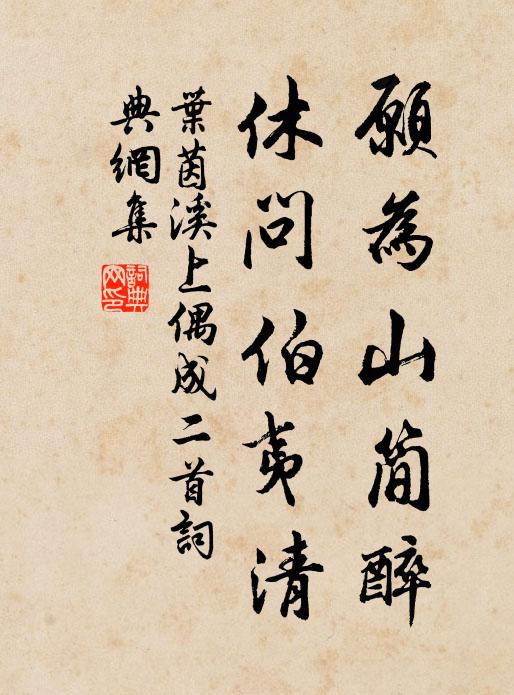 願為山簡醉
休問伯夷清
葉茵溪上偶成二首詞
典網集
詞典網印